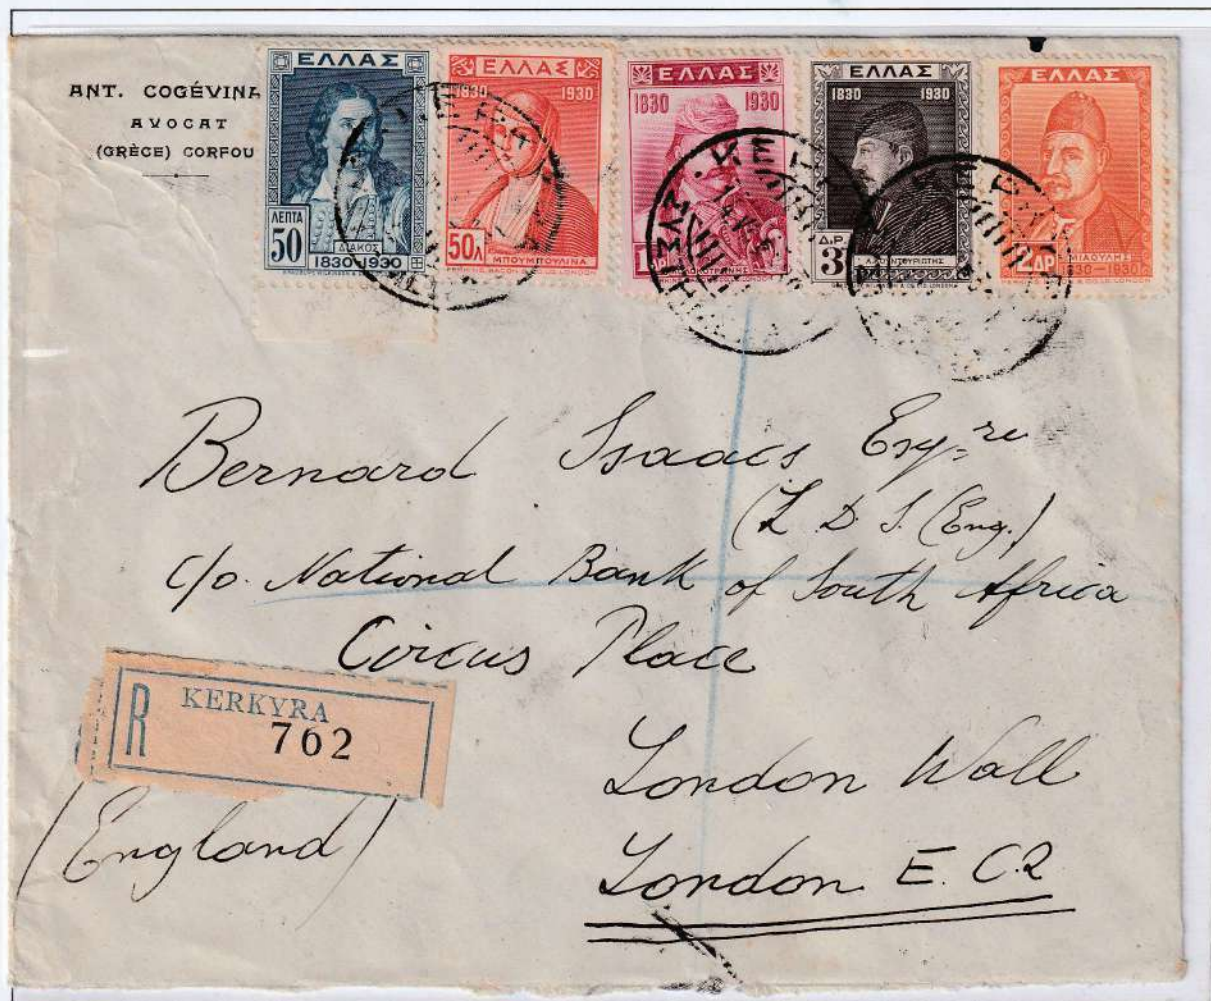 ANT. COGÉVINA
AVOCAT
(GRÈCE) CORFOU
ΕΛΛΑΣ
ΛΕΠΤΑ
50
ΔΙΑΚΟΣ
1830-1930
ΕΛΛΑΣ
1830 1930
50Λ
ΜΠΟΥΜΠΟΥΛΙΝΑ
ΕΛΛΑΣ
1830 1930
ΕΛΛΑΣ
1830 1930
Δ.Ρ.
3
ΕΛΛΑΣ
2ΔΡ
ΜΙΑΟΥΛΗΣ
1830-1930
Bernard Isaacs Esqre
(L D. S. (Eng.)
c/o. National Bank of South Africa
Circus Place
R KERKYRA
762
London Wall
(England)
London E. C. 2